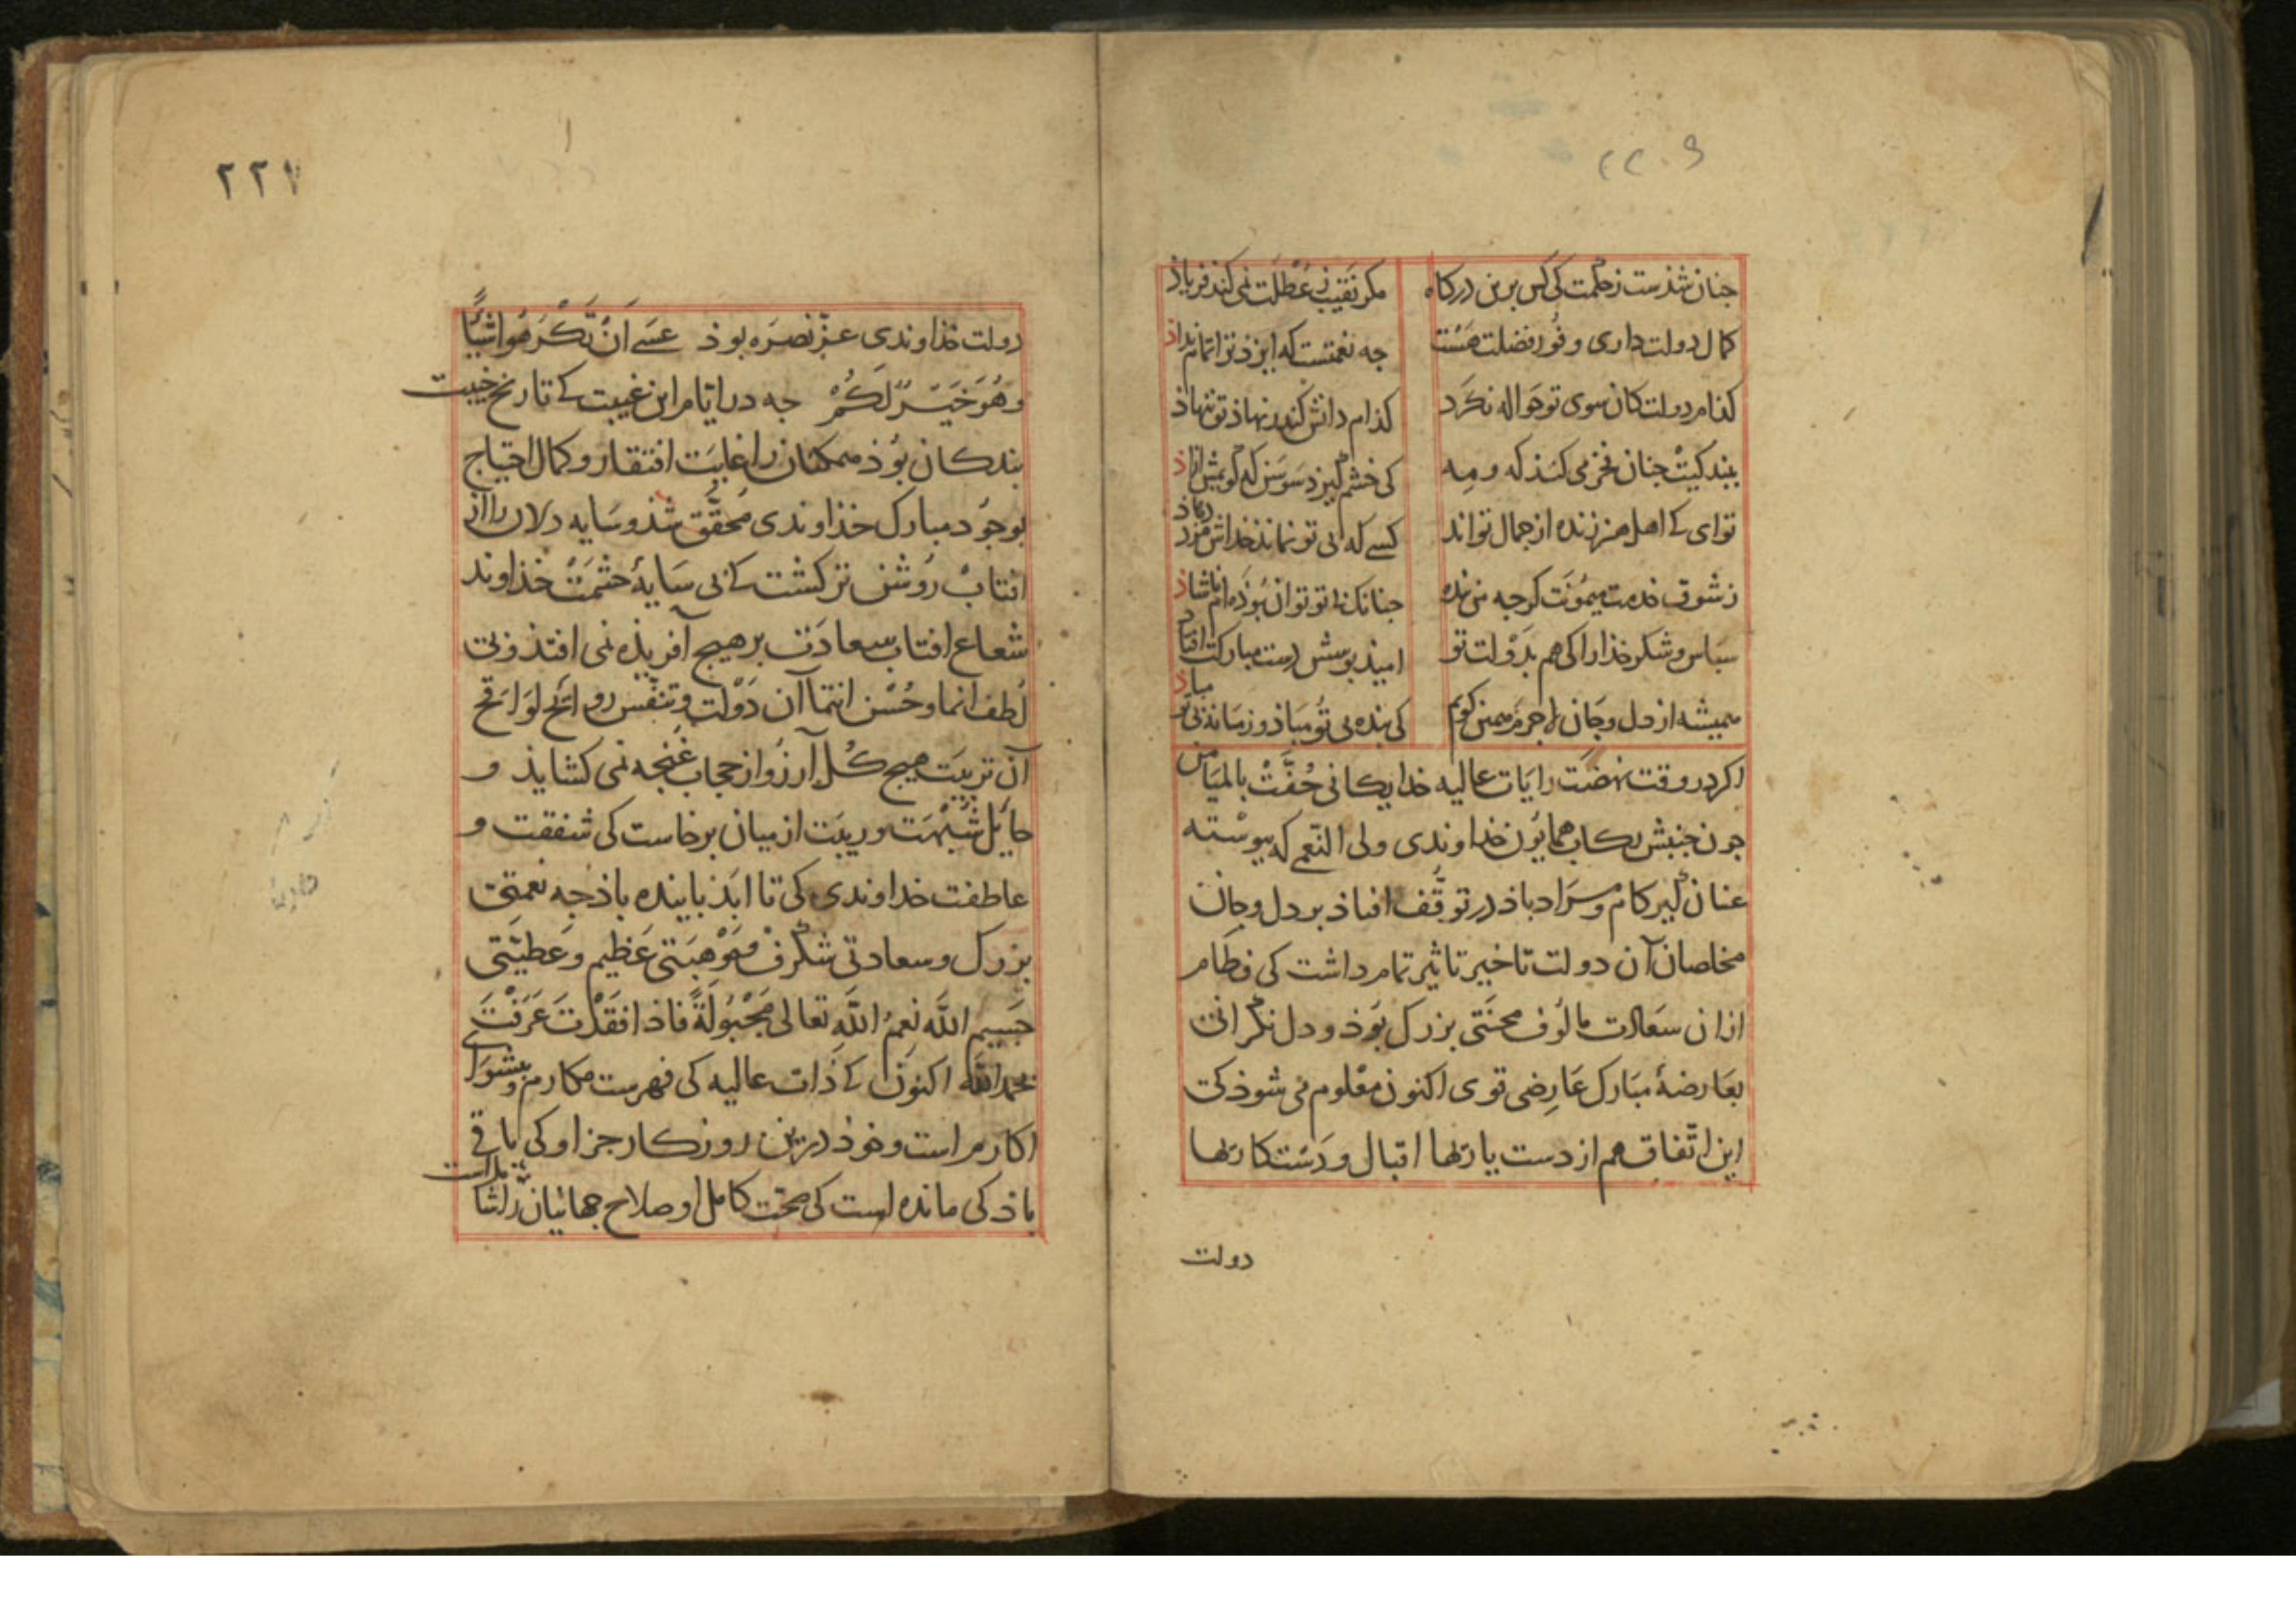 ۲۲۰۹
جنان شذست ز حکمت کی کس برین درکاه
مکر نقیب ز عطلت نمی کند فریاذ
کمال دولت داری و فور فضلت هست
جه نعمتست که ایزد ترا تمام نداذ
کذام دولت کان سوی تو حواله نکرد
کذام دانش کندر نهاذ تو ننهاذ
ببندکیت جنان فخر می کنند که و مه
کی خشم کیرد سوسن که کویمش ازاذ
توای کی اهل هنر زنده از جمال تواند
کسی که بی تو نماند خداش مزد دهاذ
ز شوق خدمت میمونت کرجه من بنده
جنانک بی تو توان بوذ مانم ناشاذ
سباس و شکر خذارا کی هم بدولت تو
امیذ بوسش دست مبارکت افتاد
همیشه از دل و جان لاجرم همین کویم
کی بنده بی تو مباذ و زمانه بی تو مباذ
اکر در وقت نهضت رایات عالیه خدایکانی حُفَّتْ بالمیامن
جون جنبش رکاب همایون خداوندی ولی النعم که پیوسته
عنان کیر کام و مراد باذ در توقّف افتاذ بر دل و جان
مخلصان آن دولت تاخیر تاثیر تمام داشت کی فطام
ازان سعادت مالوف محنتی بزرک بوذ و دل نکرانی
بعارضهٔ مبارک عارضی قوی اکنون معلوم می شوذ کی
این اتّفاق هم از دست یاریها اقبال و دستکاریها
دولت
۲۲۷
دولت خذاوندی عزّ نصره بوذ عسی اَنْ تَکْرَهُوا شیئًا
وهُوَ خَیْرٌ لَکُمْ جه در ایّام این غیبت کی تاریخ خیبت
بندکان بوذ ممکنان را غایت افتقار و کمال احتیاج
بوجود مبارک خذاوندی محقّق شذ و سایه دلان را از
افتاب روشن تر کشت کی بی سایهٔ حشمت خذاوند
شعاع افتاب سعادت بر هیج آفریذه نمی افتذ و بی
لطف انما و حُسن انتما آن دولت و تنفّس روائح لواقح
آن تربیت هیج کل آرزو از حجاب غنجه نمی کشایذ و
حایل شبهت و ریبت از میان برخاست کی شفقت و
عاطفت خداوندی کی تا ابذ باینده باذ جه نعمتی
بزرک و سعادتی شکرف و موهبتی عظیم و عطیّتی
جسیم الله نِعمُ اللّهِ تعالی مَجْهُولَةً فاذا فقدت عَرَفْتَ
بحمد الله اکنون کی ذات عالیه کی فهرست مکارم و پیشوای
اکارم است و خوذ درین روزکار جز او کی باقی
باذ کی مانده است کی صحت کامل او صلاح جهانیان را